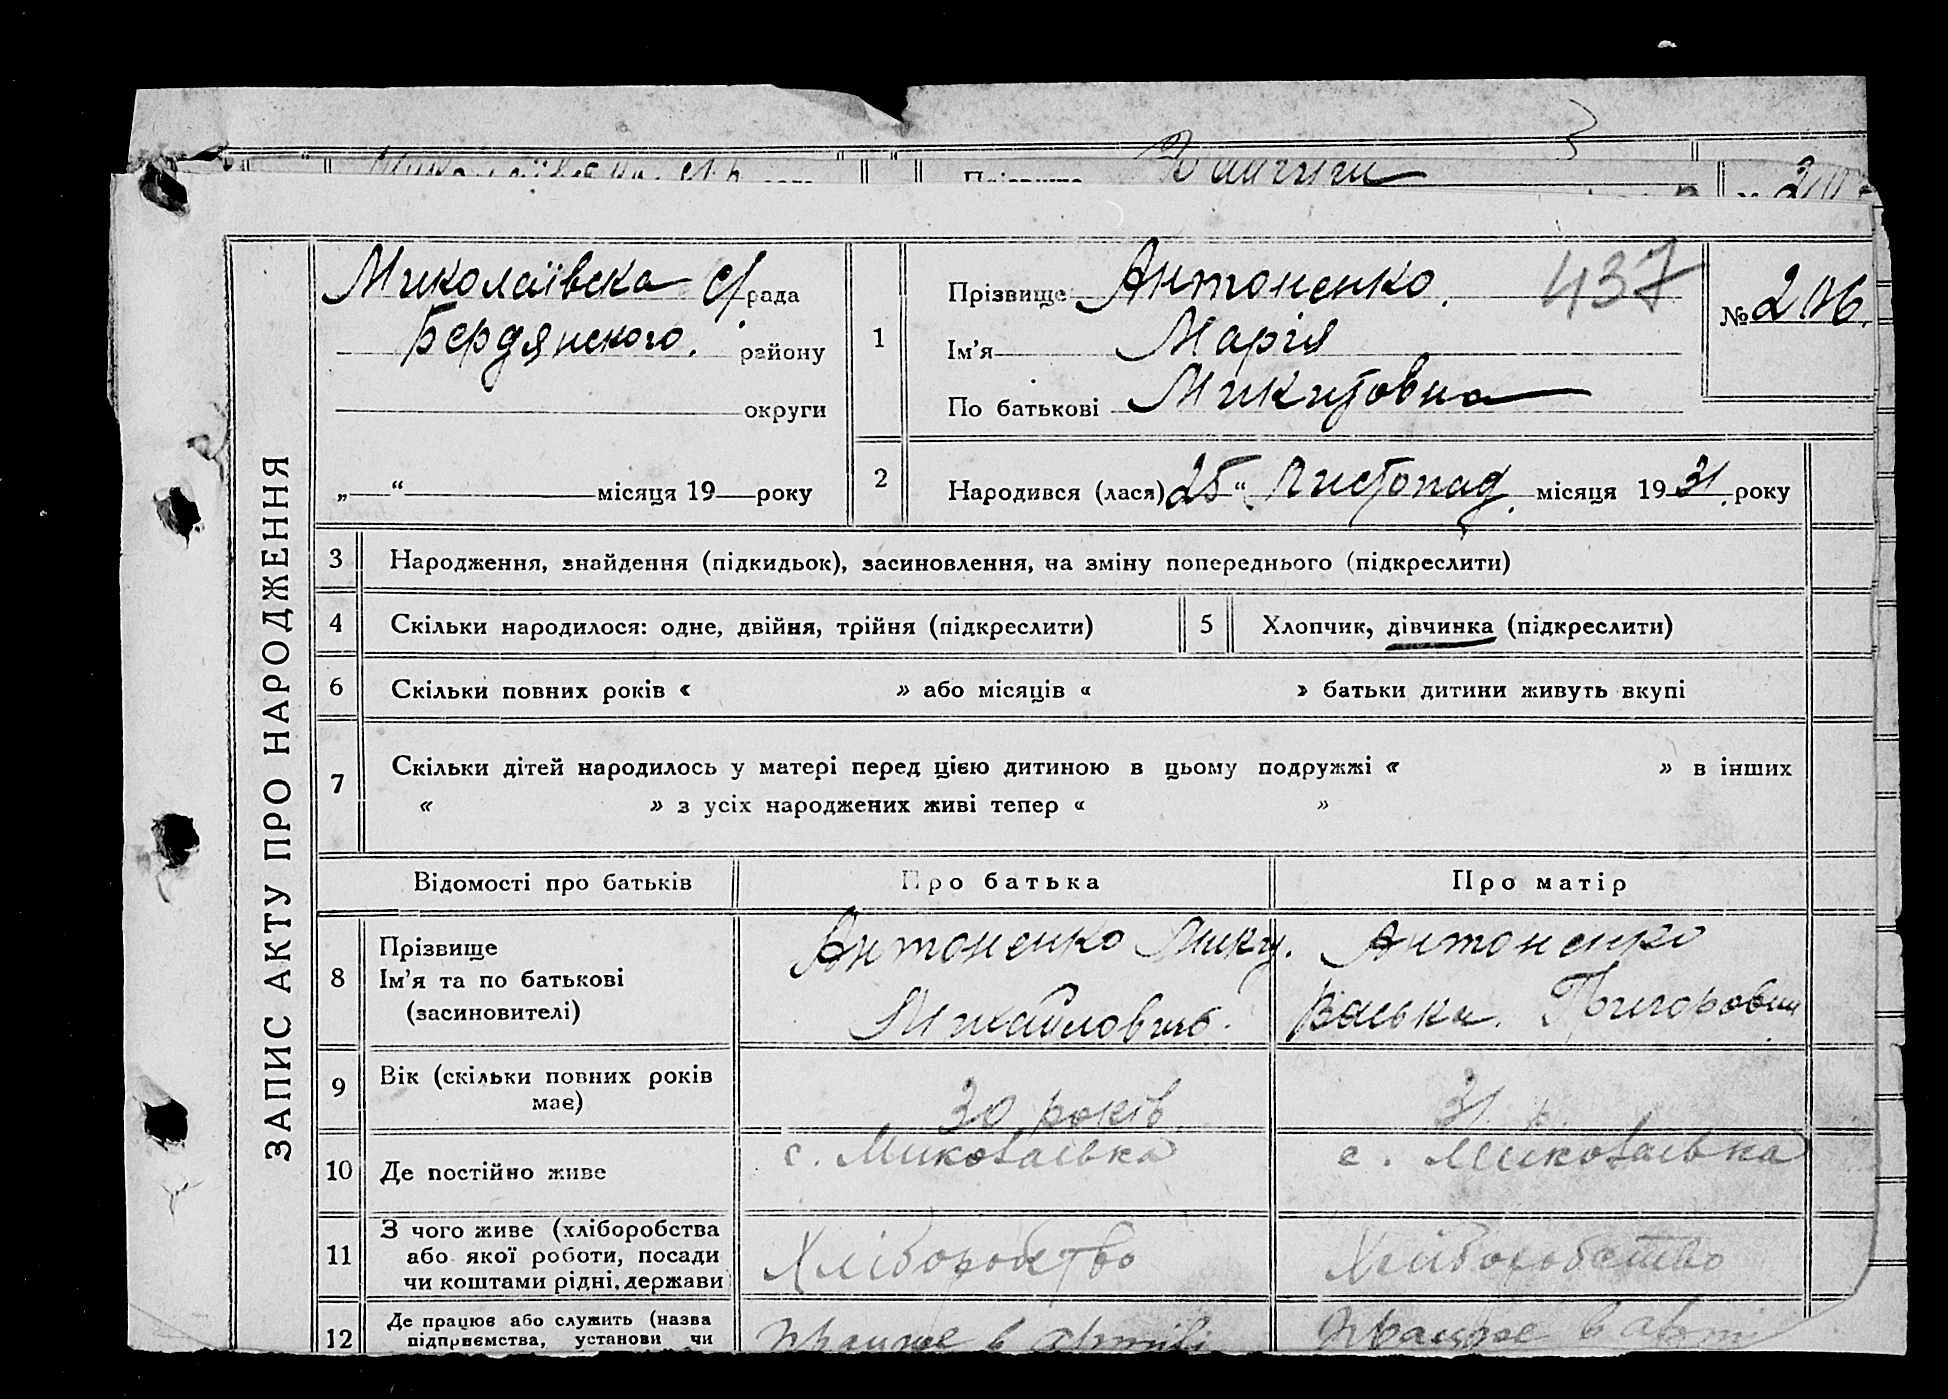 Прізвище
ЗАПИС АКТУ ПРО НАРОДЖЕННЯ
Миколаївска с/рада
Бердянского. району
округи
„ “ місяця 19 року
1
Прізвище Антоненко. 437
Ім’я Марія
По батькові Микитовна
№ 206.
2
Народився (лася) 25 “ Листопад. місяця 1931 року
3 Народження, знайдення (підкидьок), засиновлення, на зміну попереднього (підкреслити)
4 Скільки народилося: одне, двійня, трійня (підкреслити) 5 Хлопчик, дівчинка (підкреслити)
6 Скільки повних років « » або місяців « » батьки дитини живуть вкупі
7 Скільки дітей народилось у матері перед цією дитиною в цьому подружжі « » в інших
« » з усіх народжених живі тепер « »
Відомості про батьків Про батька Про матір
8
Прізвище
Ім’я та по батькові
(засиновителі)
Антоненко Мику.
Михайлович.
Антоненко
Васька. Григоровни
9
Вік (скільки повних років
має)
30 років
31 р.
10 Де постійно живе с. Миколаівка с. Миколаівка
11
З чого живе (хліборобства
або якої роботи, посади
чи коштами рідні, держави
Хліборобство
Хліборобство
12
Де працює або служить (назва
підприємства, установи чи
працює в артілі
працює в арті